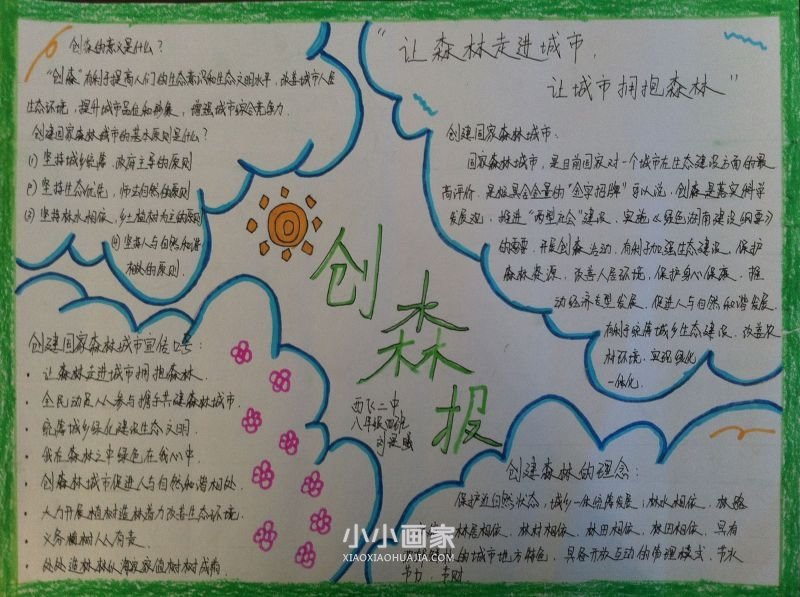 创森的意义是什么？
"创森"有利于提高人们的生态意识和生态文明水平，改善城市人居
生态环境，提升城市品位和形象，增强城市综合竞争力．
创建国家森林城市的基本原则是什么？
(1) 坚持城乡统筹，政府主导的原则
(2) 坚持生态优先，师法自然的原则
(3) 坚持林水相依、乡土植材为主的原则
(4) 坚持人与自然和谐
的原则．
"让森林走进城市，
让城市拥抱森林"
创建国家森林城市：
国家森林城市，是目前国家对一个城市在生态建设方面的最
高评价，是极具含金量的"金字招牌"可以说，创森是落实科学
发展观，推进"两型社会"建设，实施《绿色湖南建设纲要》
的需要，开展创森活动，有利于加强生态建设，保护
森林资源，改善人居环境，保护身心保康，推
动经济转型发展，促进人与自然和谐发展．
有利于统筹城乡生态建设，改善农
村环境，实现绿化
一体化．
创森报
西飞二中
八年级四班
创建国家森林城市宣传口号：
· 让森林走进城市拥抱森林．
· 全民动员人人参与携手共建森林城市．
· 统筹城乡绿化建设生态文明．
· 我在森林之中绿色在我心中．
· 创森林城市促进人与自然和谐相处．
· 大力开展植树造林着力改善生态环境．
· 义务植树人人有责．
· 处处造林林似海家家植树树成荫．
创建森林的理念：
保护近自然状态，城乡一体统筹发展，林水相依、林路
林居相依、林村相依、林田相依、林田相依，具有
的城市地方特色，具备开放互动的管理模式，节水
节力，节财．
小小画家
XIAOXIAOHUAJIA.COM